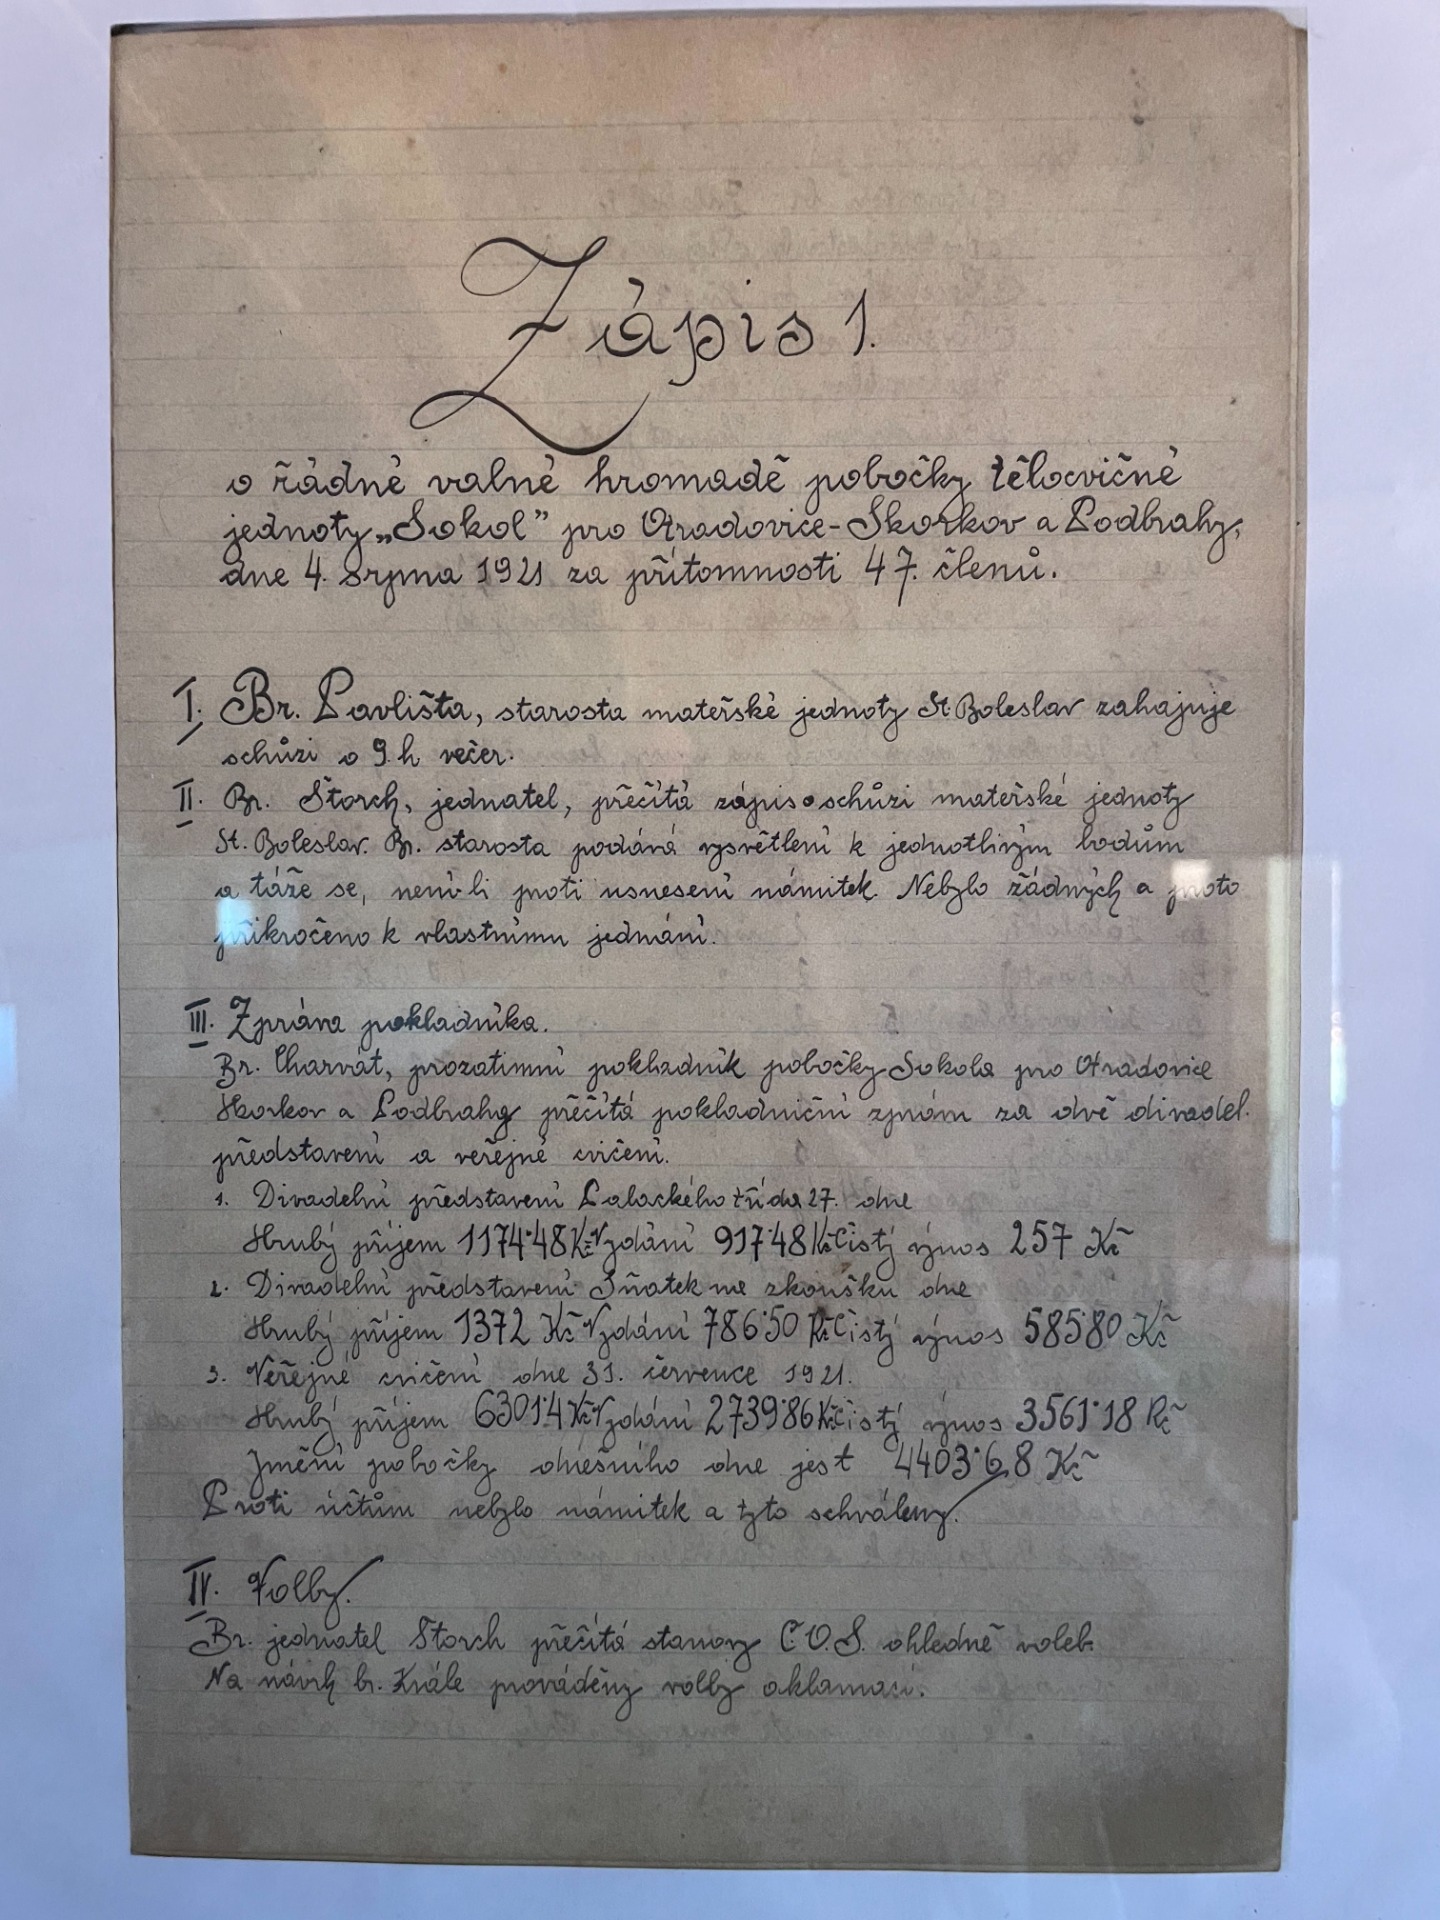 Zápis 1.
o řádné valné hromadě pobočky tělocvičné
jednoty „Sokol” pro Otradovice-Skorkov a Podbrahy,
dne 4. srpna 1921 za přítomnosti 47. členů.
I. Br. Pavlišta, starosta mateřské jednoty St. Boleslav zahajuje
schůzi o 9. h večer.
II. Br. Štorch, jednatel, přečítá zápis o schůzi mateřské jednoty
St. Boleslav. Br. starosta podává vysvětlení k jednotlivým bodům
a táže se, není-li proti usnesení námitek. Nebylo žádných a proto
přikročeno k vlastnímu jednání.
III. Zpráva pokladníka.
Br. Charvát, prozatimní pokladník pobočky Sokola pro Otradovice
Skorkov a Podbrahy přečítá pokladniční zprávu za dvě divadel.
představení a veřejné cvičení.
1. Divadelní představení Palackého třída 27. dne
Hrubý příjem 1174·48 Kč Vydání 917·48 Kč Čistý výnos 257 Kč
2. Divadelní představení Sňatek na zkoušku dne
Hrubý příjem 1372 Kč Vydání 786·50 Kč Čistý výnos 585·80 Kč
3. Veřejné cvičení dne 31. července 1921.
Hrubý příjem 6301·4 Kč Vydání 2739·86 Kč Čistý výnos 3561·18 Kč
Jmění pobočky dnešního dne jest 4403·68 Kč
Proti účtům nebylo námitek a tyto schváleny.
IV. Volby.
Br. jednatel Štorch přečítá stanovy Č.O.S. ohledně voleb.
Na návrh br. Krále prováděny volby aklamací.